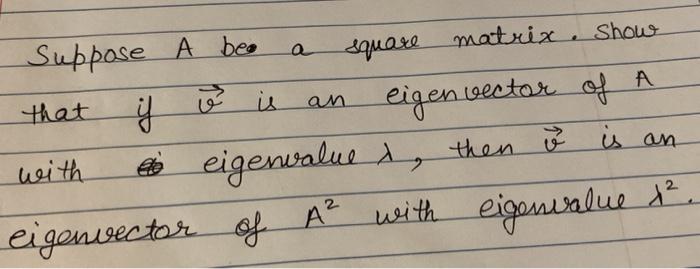 Suppose A be a square matrix. Show
that if v⃗ is an eigenvector of A
with eigenvalue λ, then v⃗ is an
eigenvector of A² with eigenvalue λ².